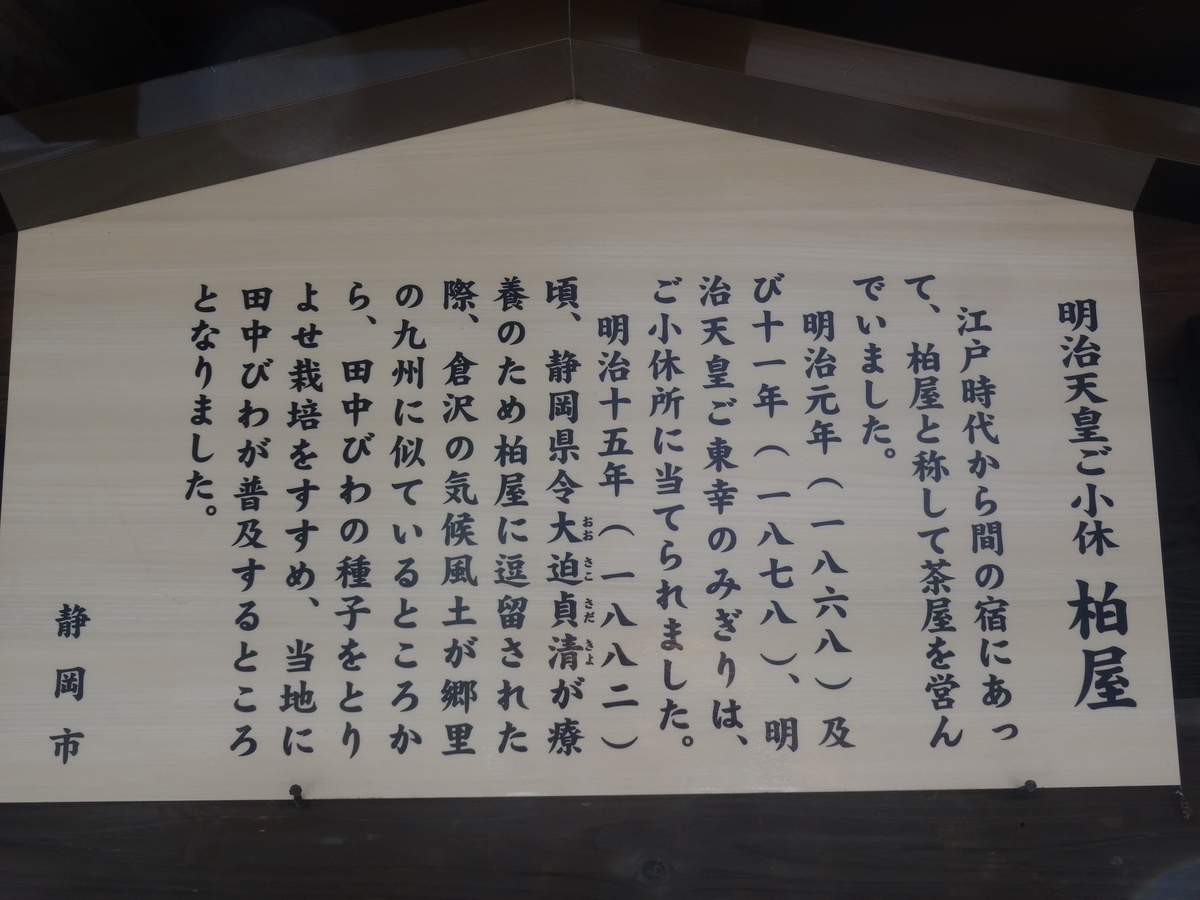 明治天皇ご小休 柏屋
江戸時代から間の宿にあっ
て、柏屋と称して茶屋を営ん
でいました。
明治元年（一八六八）及
び十一年（一八七八）、明
治天皇ご東幸のみぎりは、
ご小休所に当てられました。
明治十五年（一八八二）
頃、静岡県令大迫貞清が療
おおさこさだきよ
養のため柏屋に逗留された
際、倉沢の気候風土が郷里
の九州に似ているところか
ら、田中びわの種子をとり
よせ栽培をすすめ、当地に
田中びわが普及するところ
となりました。
静岡市